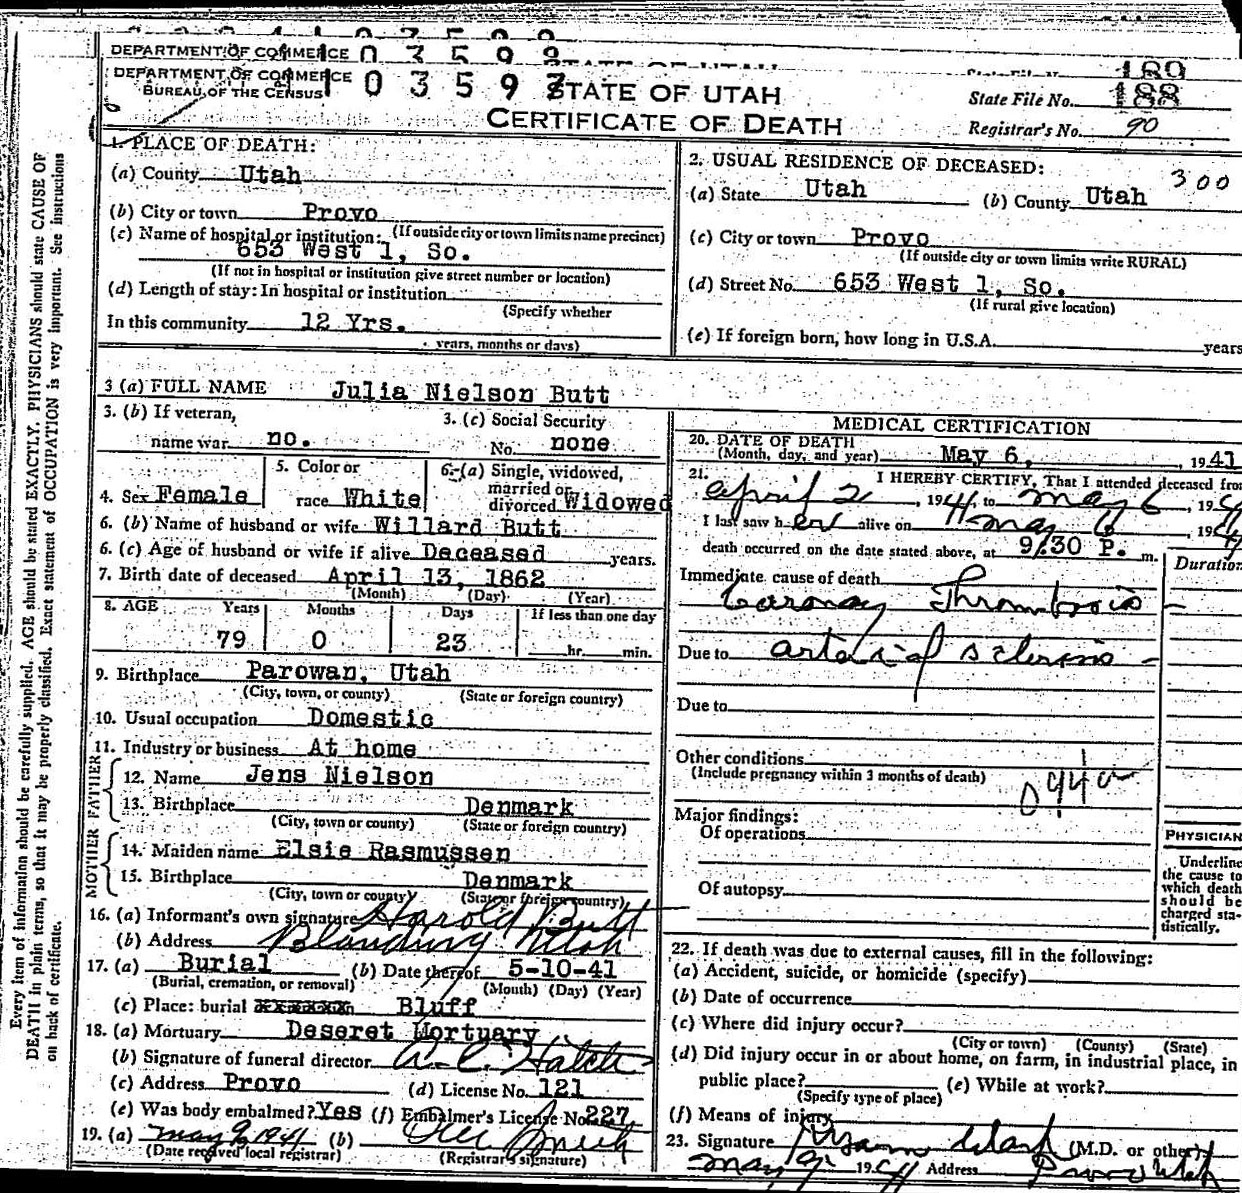 DEPARTMENT OF COMMERCE
DEPARTMENT OF COMMERCE
BUREAU OF THE CENSUS
STATE OF UTAH
CERTIFICATE OF DEATH
189
State File No. 188
Registrar's No. 90
1. PLACE OF DEATH:
(a) County Utah
(b) City or town Provo
(If outside city or town limits name precinct)
(c) Name of hospital or institution:
653 West 1, So.
(If not in hospital or institution give street number or location)
(d) Length of stay: In hospital or institution
(Specify whether
In this community 12 Yrs.
years, months or days)
2. USUAL RESIDENCE OF DECEASED:
300
(a) State Utah (b) County Utah
(c) City or town Provo
(If outside city or town limits write RURAL)
(d) Street No. 653 West 1, So.
(If rural give location)
(e) If foreign born, how long in U.S.A. years
3 (a) FULL NAME Julia Nielson Butt
3. (b) If veteran,
name war no.
3. (c) Social Security
No. none
4. Sex Female
5. Color or
race White
6.-(a) Single, widowed,
married or
divorced Widowed
6. (b) Name of husband or wife Willard Butt
6. (c) Age of husband or wife if alive Deceased years.
7. Birth date of deceased April 13, 1862
(Month) (Day) (Year)
8. AGE Years Months Days If less than one day
79 0 23 hr. min.
9. Birthplace Parowan, Utah
(City, town, or county) (State or foreign country)
10. Usual occupation Domestic
11. Industry or business At home
FATHER
12. Name Jens Nielson
13. Birthplace Denmark
(City, town or county) (State or foreign country)
MOTHER
14. Maiden name Elsie Rasmussen
15. Birthplace Denmark
(City, town or county) (State or foreign country)
16. (a) Informant's own signature Harold Butt
(b) Address Blanding Utah
17. (a) Burial (b) Date thereof 5-10-41
(Burial, cremation, or removal) (Month) (Day) (Year)
(c) Place: burial Bluff
18. (a) Mortuary Deseret Mortuary
(b) Signature of funeral director A. C. Hatch
(c) Address Provo (d) License No. 121
(e) Was body embalmed? Yes (f) Embalmer's License No. 227
19. (a) May 9, 1941 (b)
(Date received local registrar) (Registrar's signature)
MEDICAL CERTIFICATION
20. DATE OF DEATH
(Month, day, and year) May 6, , 1941
21. I HEREBY CERTIFY, That I attended deceased from
April 2 , 1941, to May 6 , 1941
I last saw her alive on May 6 , 1941
death occurred on the date stated above, at 9:30 P. m.
Duration
Immediate cause of death
Coronary Thrombosis -
Due to arteriosclerosis -
Due to
Other conditions
(Include pregnancy within 3 months of death)
094a
Major findings:
Of operations
Of autopsy
PHYSICIAN
Underline
the cause to
which death
should be
charged sta-
tistically.
22. If death was due to external causes, fill in the following:
(a) Accident, suicide, or homicide (specify)
(b) Date of occurrence
(c) Where did injury occur?
(City or town) (County) (State)
(d) Did injury occur in or about home, on farm, in industrial place, in
public place? (e) While at work?
(Specify type of place)
(f) Means of injury
23. Signature (M.D. or other)
May 9, 1941 Address Provo Utah
Every item of information should be carefully supplied. AGE should be stated EXACTLY. PHYSICIANS should state CAUSE OF
DEATH in plain terms, so that it may be properly classified. Exact statement of OCCUPATION is very important. See instructions
on back of certificate.